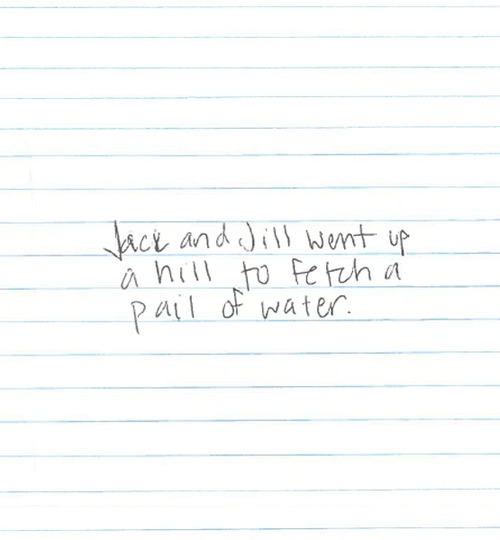 Jack and Jill went up
a hill to fetch a
pail of water.